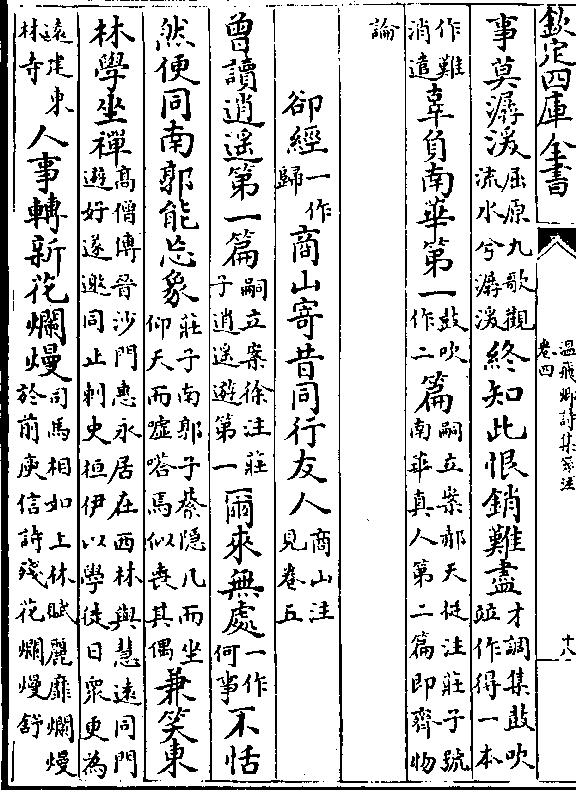 欽定四庫全書
溫飛卿詩集箋注
卷四
十八
事莫潺湲屈原九歌觀流水兮潺湲終知此恨銷難盡才調集鼓吹竝作得一本
作難消遣辜負南華第一鼓吹作二篇嗣立案郝天挺注莊子號南華真人第二篇即齊物
論
卻經一作歸商山寄昔同行友人商山注見卷五
曾讀逍遙第一篇嗣立案徐注莊子逍遙遊第一爾來無處一作何事不恬
然便同南郭能忘象莊子南郭子綦隱几而坐仰天而噓嗒焉似喪其偶兼笑東
林學坐禪高僧傳晉沙門惠永居在西林與慧遠同門遊好遂邀同止刺史桓伊以學徒日衆更為
遠建東林寺人事轉新花爛熳司馬相如上林賦麗靡爛熳於前庾信詩殘花爛熳舒